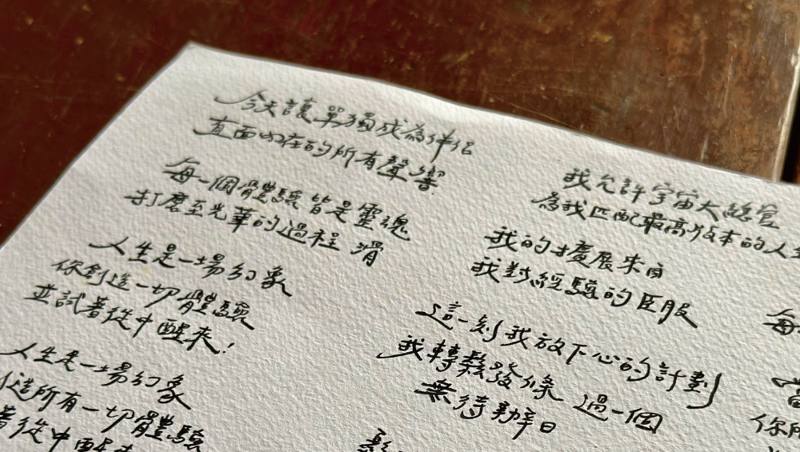 今天讓單獨成為伴侶
直面內在的所有聲響
每一個體驗皆是靈魂
打磨至光華的過程 滑
人生是一場幻象
你創造一切體驗
並試著從中醒來!
人生是一場幻象
造所有一切體驗
著從中醒來
我允許宇宙大總管
為我匹配最高版本的人生
我的擴展來自
我對經驗的臣服
這一刻我放下心的計劃
我轉鬆發條 過一個
無待辦日
每
當
你所